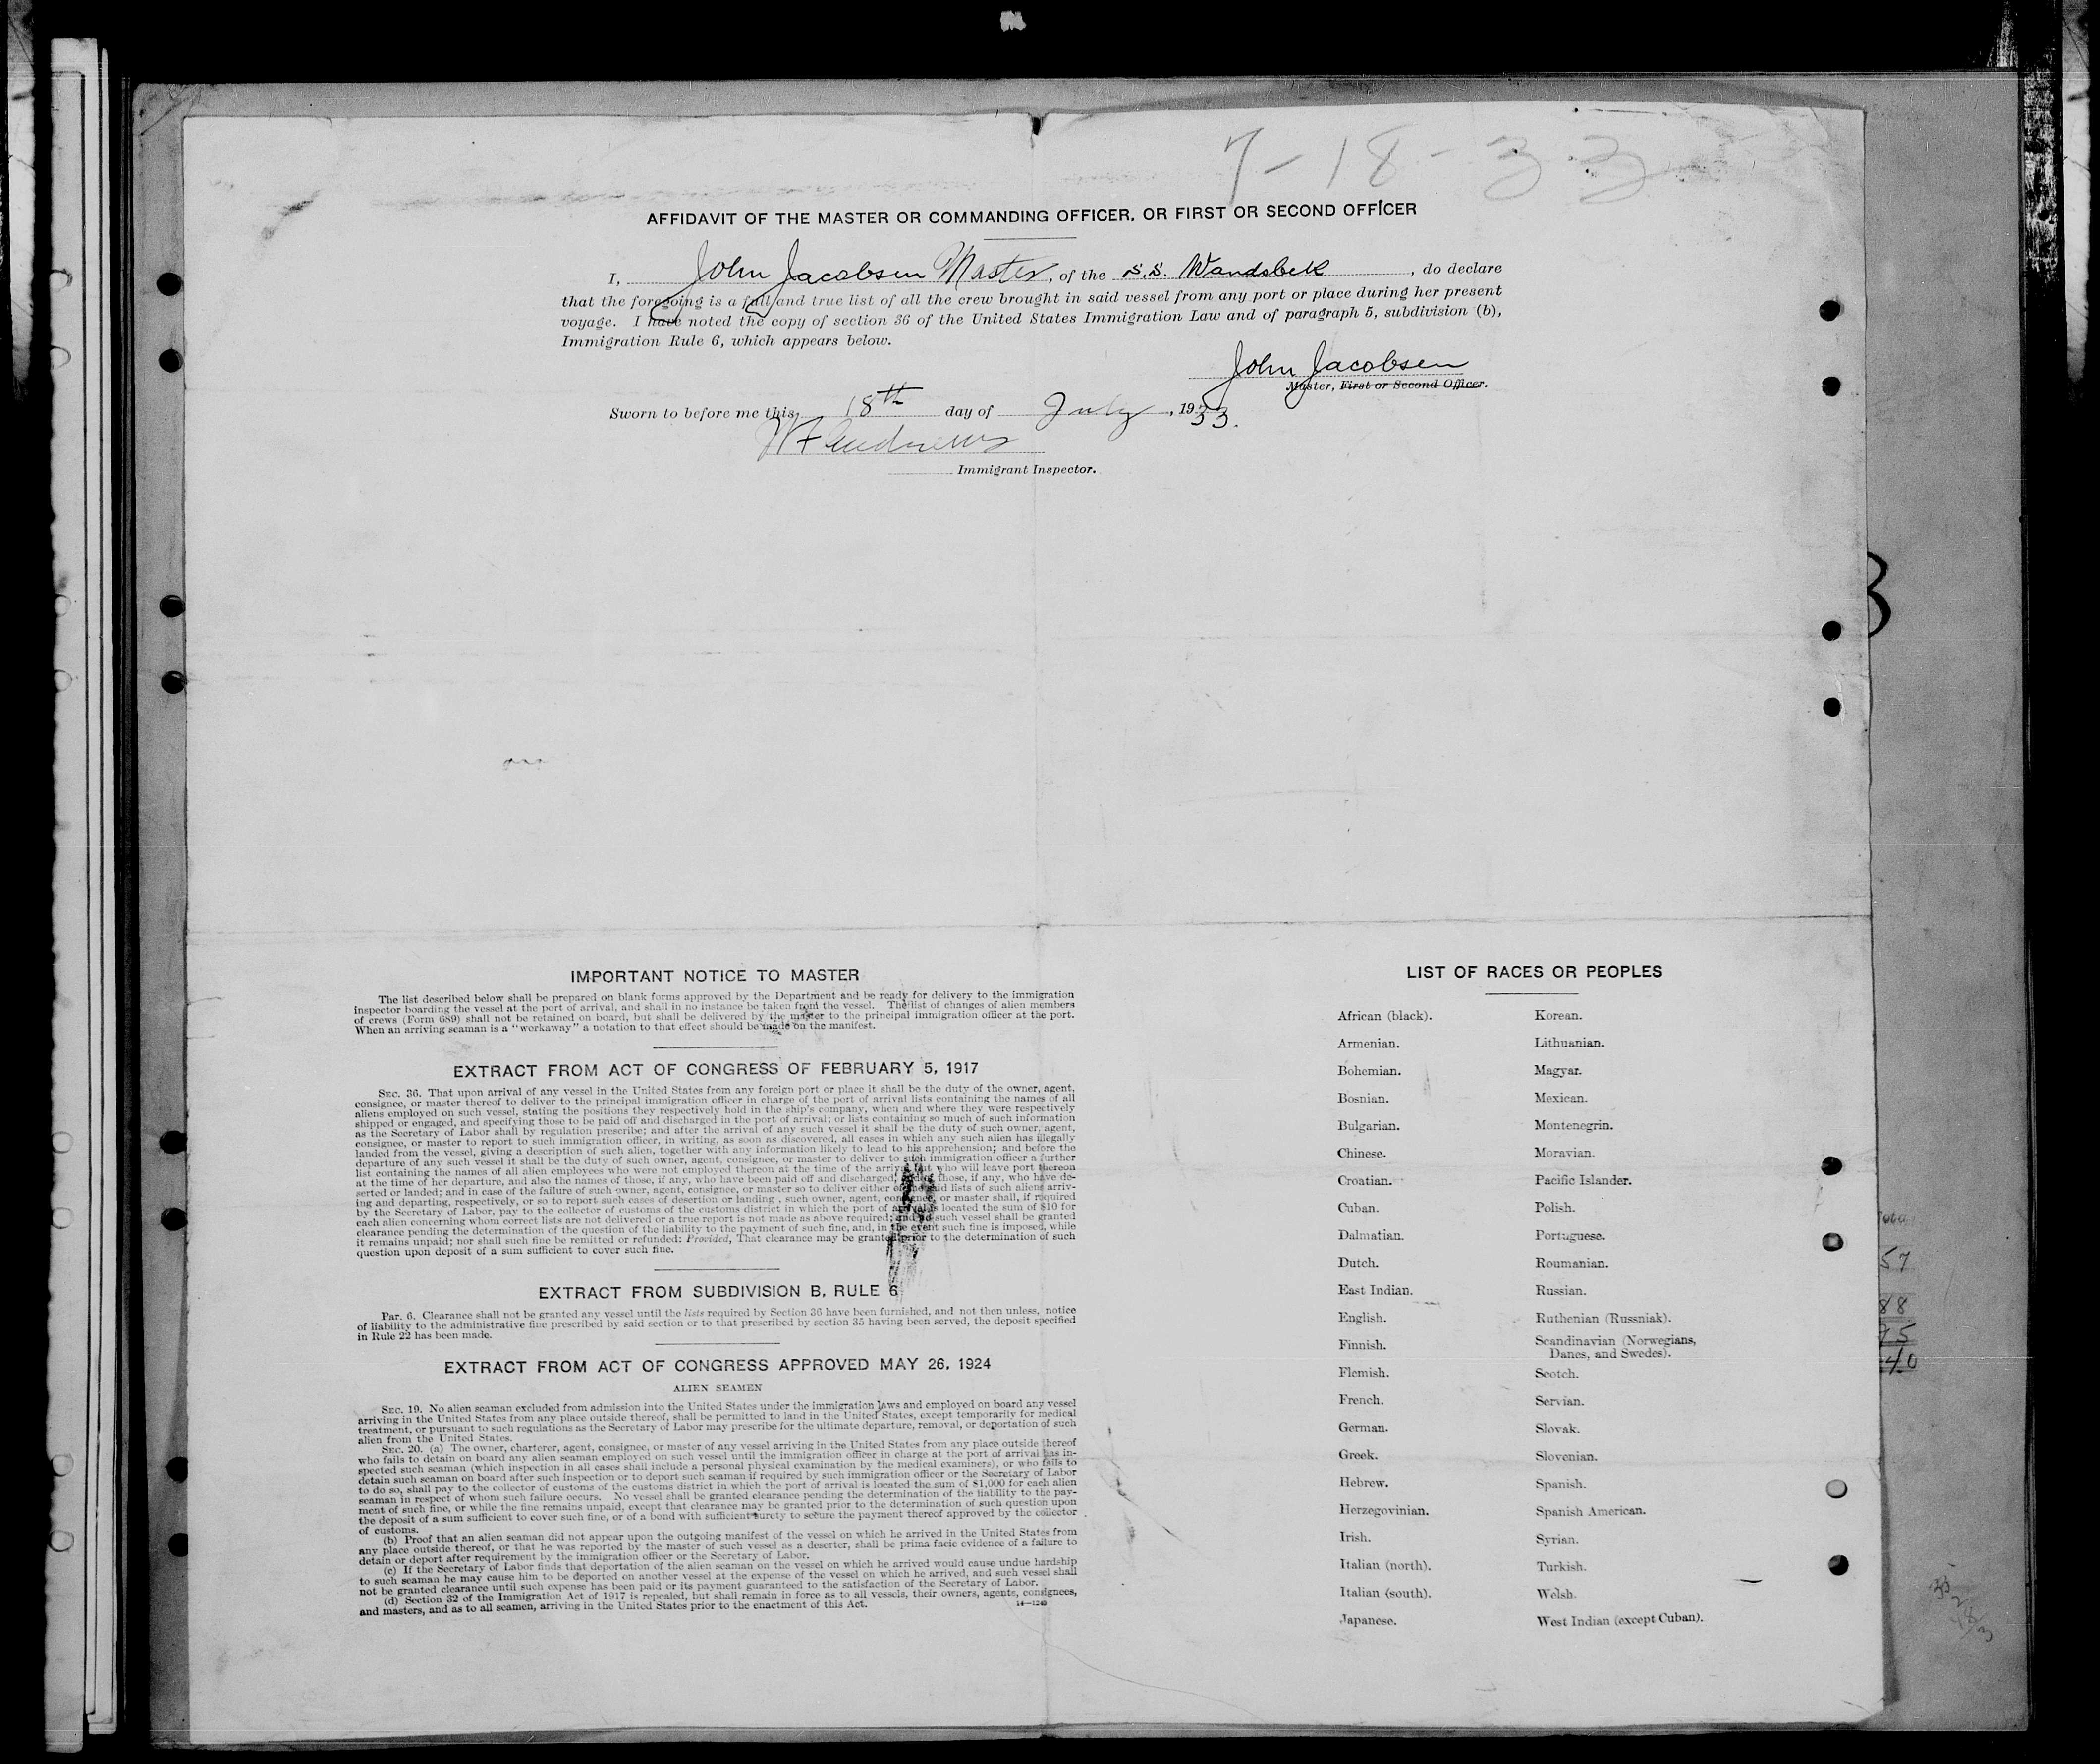 7-18-33
AFFIDAVIT OF THE MASTER OR COMMANDING OFFICER, OR FIRST OR SECOND OFFICER
I, John Jacobsen Master, of the S.S. Wandsbek, do declare
that the foregoing is a full and true list of all the crew brought in said vessel from any port or place during her present
voyage. I have noted the copy of section 36 of the United States Immigration Law and of paragraph 5, subdivision (b),
Immigration Rule 6, which appears below.
John Jacobsen
Master, First or Second Officer.
Sworn to before me this 18th day of July, 1933.
Immigrant Inspector.
IMPORTANT NOTICE TO MASTER
The list described below shall be prepared on blank forms approved by the Department and be ready for delivery to the immigration
inspector boarding the vessel at the port of arrival, and shall in no instance be taken from the vessel. The list of changes of alien members
of crews (Form 689) shall not be retained on board, but shall be delivered by the master to the principal immigration officer at the port.
When an arriving seaman is a "workaway" a notation to that effect should be made on the manifest.
EXTRACT FROM ACT OF CONGRESS OF FEBRUARY 5, 1917
SEC. 36. That upon arrival of any vessel in the United States from any foreign port or place it shall be the duty of the owner, agent,
consignee, or master thereof to deliver to the principal immigration officer in charge of the port of arrival lists containing the names of all
aliens employed on such vessel, stating the positions they respectively hold in the ship's company, when and where they were respectively
shipped or engaged, and specifying those to be paid off and discharged in the port of arrival; or lists containing so much of such information
as the Secretary of Labor shall by regulation prescribe; and after the arrival of any such vessel it shall be the duty of such owner, agent,
consignee, or master to report to such immigration officer, in writing, as soon as discovered, all cases in which any such alien has illegally
landed from the vessel, giving a description of such alien, together with any information likely to lead to his apprehension; and before the
departure of any such vessel it shall be the duty of such owner, agent, consignee, or master to deliver to such immigration officer a further
list containing the names of all alien employees who were not employed thereon at the time of the arrival but who will leave port thereon
at the time of her departure, and also the names of those, if any, who have been paid off and discharged, and of those, if any, who have de-
serted or landed; and in case of the failure of such owner, agent, consignee, or master so to deliver either of the said lists of such aliens arriv-
ing and departing, respectively, or so to report such cases of desertion or landing, such owner, agent, consignee, or master shall, if required
by the Secretary of Labor, pay to the collector of customs of the customs district in which the port of arrival is located the sum of $10 for
each alien concerning whom correct lists are not delivered or a true report is not made as above required; and no such vessel shall be granted
clearance pending the determination of the question of the liability to the payment of such fine, and, in the event such fine is imposed, while
it remains unpaid; nor shall such fine be remitted or refunded: Provided, That clearance may be granted prior to the determination of such
question upon deposit of a sum sufficient to cover such fine.
EXTRACT FROM SUBDIVISION B, RULE 6
Par. 6. Clearance shall not be granted any vessel until the lists required by Section 36 have been furnished, and not then unless, notice
of liability to the administrative fine prescribed by said section or to that prescribed by section 35 having been served, the deposit specified
in Rule 22 has been made.
EXTRACT FROM ACT OF CONGRESS APPROVED MAY 26, 1924
ALIEN SEAMEN
SEC. 19. No alien seaman excluded from admission into the United States under the immigration laws and employed on board any vessel
arriving in the United States from any place outside thereof, shall be permitted to land in the United States, except temporarily for medical
treatment, or pursuant to such regulations as the Secretary of Labor may prescribe for the ultimate departure, removal, or deportation of such
alien from the United States.
SEC. 20. (a) The owner, charterer, agent, consignee, or master of any vessel arriving in the United States from any place outside thereof
who fails to detain on board any alien seaman employed on such vessel until the immigration officer in charge at the port of arrival has in-
spected such seaman (which inspection in all cases shall include a personal physical examination by the medical examiners), or who fails to
detain such seaman on board after such inspection or to deport such seaman if required by such immigration officer or the Secretary of Labor
to do so, shall pay to the collector of customs of the customs district in which the port of arrival is located the sum of $1,000 for each alien
seaman in respect of whom such failure occurs. No vessel shall be granted clearance pending the determination of the liability to the pay-
ment of such fine, or while the fine remains unpaid, except that clearance may be granted prior to the determination of such question upon
the deposit of a sum sufficient to cover such fine, or of a bond with sufficient surety to secure the payment thereof approved by the collector
of customs.
(b) Proof that an alien seaman did not appear upon the outgoing manifest of the vessel on which he arrived in the United States from
any place outside thereof, or that he was reported by the master of such vessel as a deserter, shall be prima facie evidence of a failure to
detain or deport after requirement by the immigration officer or the Secretary of Labor.
(c) If the Secretary of Labor finds that deportation of the alien seaman on the vessel on which he arrived would cause undue hardship
to such seaman he may cause him to be deported on another vessel at the expense of the vessel on which he arrived, and such vessel shall
not be granted clearance until such expense has been paid or its payment guaranteed to the satisfaction of the Secretary of Labor.
(d) Section 32 of the Immigration Act of 1917 is repealed, but shall remain in force as to all vessels, their owners, agents, consignees,
and masters, and as to all seamen, arriving in the United States prior to the enactment of this Act.
14-1240
LIST OF RACES OR PEOPLES
African (black).
Armenian.
Bohemian.
Bosnian.
Bulgarian.
Chinese.
Croatian.
Cuban.
Dalmatian.
Dutch.
East Indian.
English.
Finnish.
Flemish.
French.
German.
Greek.
Hebrew.
Herzegovinian.
Irish.
Italian (north).
Italian (south).
Japanese.
Korean.
Lithuanian.
Magyar.
Mexican.
Montenegrin.
Moravian.
Pacific Islander.
Polish.
Portuguese.
Roumanian.
Russian.
Ruthenian (Russniak).
Scandinavian (Norwegians,
Danes, and Swedes).
Scotch.
Servian.
Slovak.
Slovenian.
Spanish.
Spanish American.
Syrian.
Turkish.
Welsh.
West Indian (except Cuban).
57
88
40